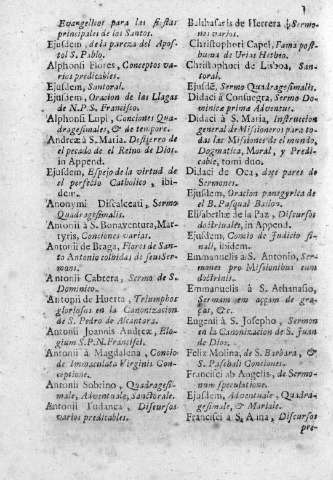 Evangelhos para las fiestas
principales de los Santos.
Ejusdem, de la pureza del Apos-
tol S. Pablo.
Alphonsi Flores, Conceptos va-
rios predicables.
Ejusdem, Santoral.
Ejusdem, Oracion de las Llagas
de N.P.S. Francisco.
Alphonsi Lupi, Conciones Qua-
dragesimales, & de tempore.
Andreæ à S. Maria. Destierro de
el pecado de el Reino de Dios.
in Append.
Ejusdem, Espejo de la virtud de
el perfecto Catholico, ibi-
dem.
Anonymi Discalceati, Sermo
Quadragesimalis.
Antonii à S. Bonaventura, Mar-
tyris, Conciones varias.
Antonii de Braga, Flores de San-
to Antonio colhidas de seus Ser-
mons.
Antonii Cabrera, Sermo de S.
Dominico.
Antonii de Huerta, Triumphos
gloriosos en la Canonizacion
de S. Pedro de Alcantara.
Antonii Joannis Andreæ, Elo-
gium S.P.N. Francisci.
Antonii à Magdalena, Concio
de Immaculata Virginis Con-
ceptione.
Antonii Sobrino, Quadragesi-
male, Adventuale, Sanctorale.
Antonii Tudanca, Discursos
varios predicables.
Balthasaris de Herrera, Sermo-
nes varios.
Christophori Capel, Fama post-
huma de Urias Hetheo.
Christophori de Lisboa, San-
toral.
Ejusdē, Sermo Quadragesimalis.
Didaci à Consuegra, Sermo Do-
minicæ primæ Adventus.
Didaci à S. Maria, Instruccion
general de Missioneros para to-
das las Missiones de el mundo,
Dogmatica, Moral, y Predi-
cable, tomi duo.
Didaci de Oca, dos pares de
Sermones.
Ejusdem, Oracion panegyrica de
el B. Pasqual Bailon.
Elisabethæ de la Paz, Discursos
doctrinales, in Append.
Ejusdem, Concio de Judicio fi-
nali, ibidem.
Emmanuelis à S. Antonio, Ser-
mones pro Missionibus cum
doctrinis.
Emmanuelis à S. Athanasio,
Sermam sem acçam de gra-
ças, &c.
Eugenii à S. Josepho, Sermon
en la Canonizacion de S. Juan
de Dios.
Felix Molina, de S. Barbara, &
S. Paschali Conciones.
Francisci ab Angelis, de Sermo-
num speculatione.
Ejusdem, Adventuale, Quadra-
gesimale, & Mariale.
Francisci à S. Anna, Discursos
pre-